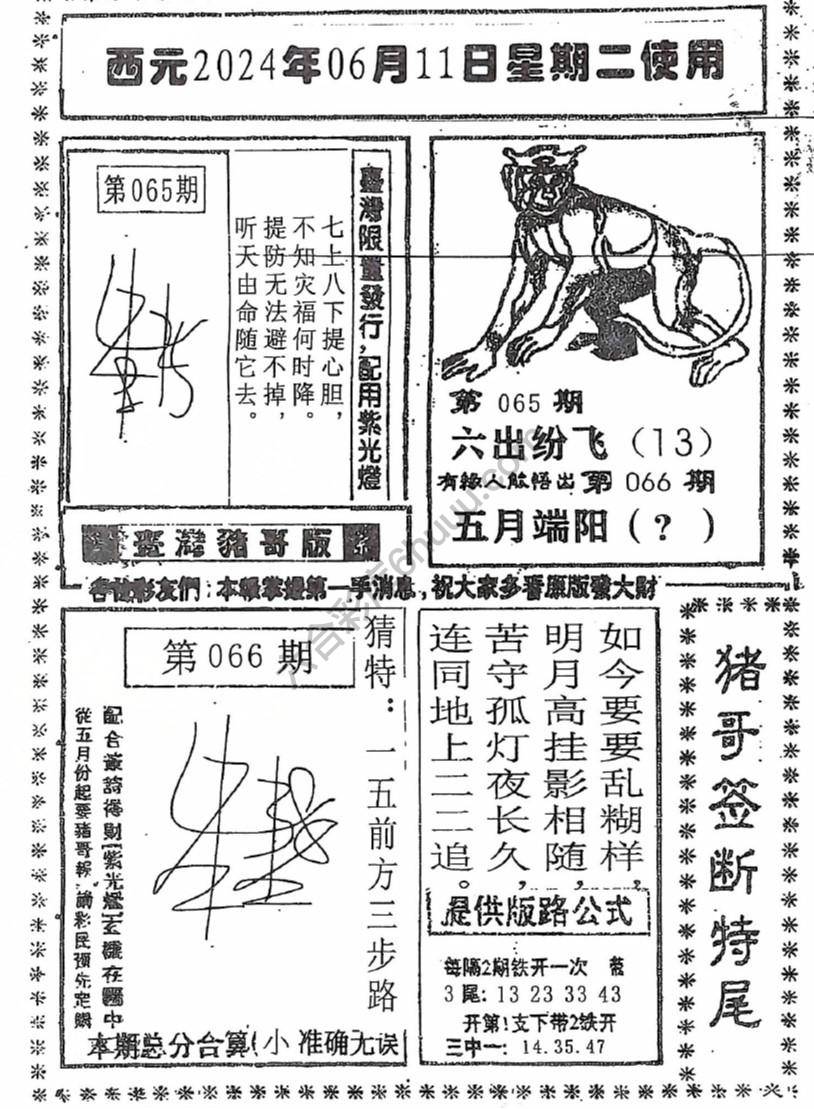 西元2024年06月11日星期二使用
第065期
七上八下提心胆，
不知灾福何时降。
提防无法避不掉，
听天由命随它去。
臺灣限量發行，配用紫光燈
臺灣豬哥版
第 065 期
六出纷飞（13）
有緣人能悟出 第 066 期
五月端阳（？）
各位彩友們：本報掌握第一手消息，祝大家多看原版發大財
第 066 期
猜特：一五前方三步路
配合簽詩得財【紫光燈】玄機在圖中
從五月份起要豬哥報 請彩民預先定購
本期总分合算(小 准确无误
如今要要乱糊样，
明月高挂影相随，
苦守孤灯夜长久，
连同地上二二追。
提供版路公式
每隔2期铁开一次 带
3尾: 13 23 33 43
开第1支下带2铁开
三中一: 14.35.47
猪哥签断特尾